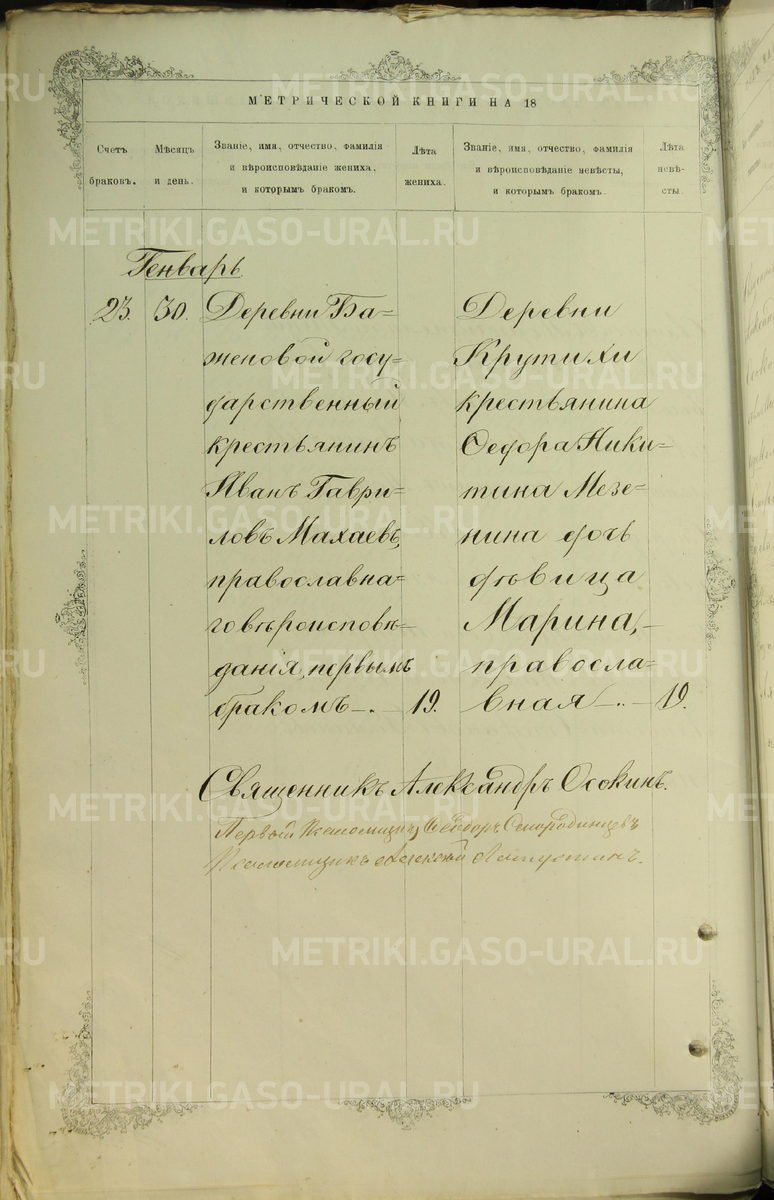 МЕТРИЧЕСКОЙ КНИГИ НА 18
Счетъ браковъ.
Мѣсяцъ и день.
Званіе, имя, отчество, фамилія и вѣроисповѣданіе жениха, и которымъ бракомъ.
Лѣта жениха.
Званіе, имя, отчество, фамилія и вѣроисповѣданіе невѣсты, и которымъ бракомъ.
Лѣта невѣ-сты.
Генварь
23. 30.
Деревни Ба=
женовой госу=
дарственный
крестьянинъ
Иванъ Гаври=
ловъ Махаевъ,
православна=
го вѣроисповѣ=
данія, первымъ
бракомъ —. — 19.
Деревни
Крутихи
крестьянина
Ѳедора Ники=
тина Мезе=
нина дочь
дѣвица
Марина, —
правосла=
вная —..— 19.
Священникъ Александръ Осокинъ.
Первый Псаломщикъ Ѳеодоръ
Псаломщикъ
METRIKI.GASO-URAL.RU